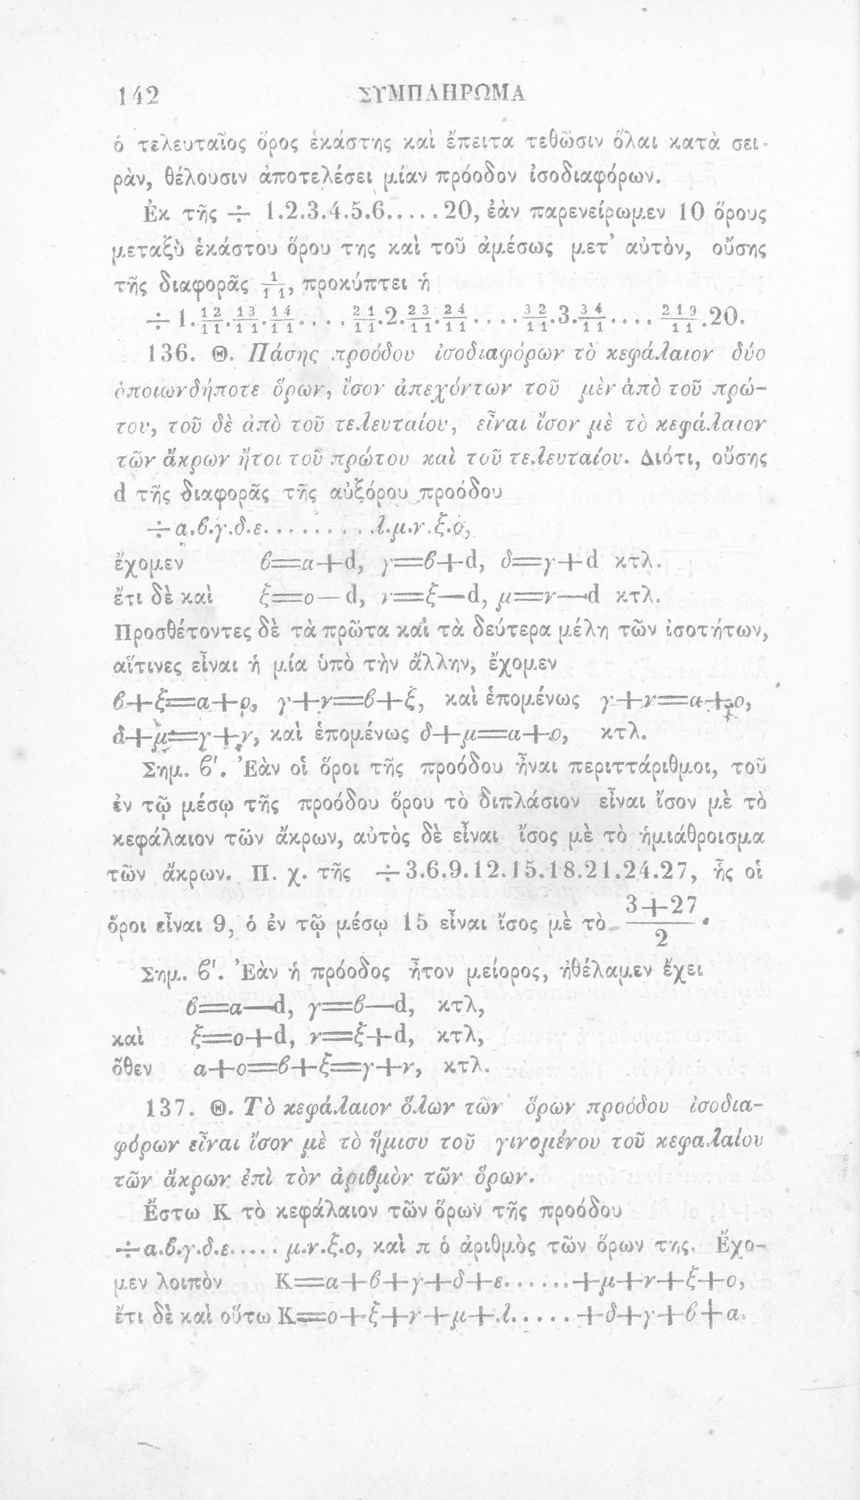 142 ΣΥΜΠΛΗΡΩΜΑ
ὁ τελευταῖος ὅρος ἑκάστης καὶ ἔπειτα τεθῶσιν ὅλαι κατὰ σει-
ρὰν, θέλουσιν ἀποτελέσει μίαν πρόοδον ἰσοδιαφόρων.
Ἐκ τῆς ÷ 1.2.3.4.5.6.....20, ἐὰν παρενείρωμεν 10 ὅρους
μεταξὺ ἑκάστου ὅρου της καὶ τοῦ ἀμέσως μετ' αὐτὸν, οὔσης
τῆς διαφορᾶς 1/11, προκύπτει ἡ
÷ 1.12/11.13/11.14/11.... 21/11.2.23/11.24/11....32/11.3.34/11.... 219/11.20.
136. Θ. Πάσης προόδου ἰσοδιαφόρων τὸ κεφάλαιον δύο
ὁποιωνδήποτε ὅρων, ἴσον ἀπεχόντων τοῦ μὲν ἀπὸ τοῦ πρώ-
του, τοῦ δὲ ἀπὸ τοῦ τελευταίου, εἶναι ἴσον μὲ τὸ κεφάλαιον
τῶν ἄκρων ἤτοι τοῦ πρώτου καὶ τοῦ τελευταίου. Διότι, οὔσης
d τῆς διαφορᾶς τῆς αὐξόρου προόδου
÷α.β.γ.δ.ε.........λ.μ.ν.ξ.ο,
ἔχομεν β=α+d, γ=β+d, δ=γ+d κτλ.
ἔτι δὲ καὶ ξ=ο—d, ν=ξ—d, μ=ν—d κτλ.
Προσθέτοντες δὲ τὰ πρῶτα καὶ τὰ δεύτερα μέλη τῶν ἰσοτήτων,
αἵτινες εἶναι ἡ μία ὑπὸ τὴν ἄλλην, ἔχομεν
β+ξ=α+ο, γ+ν=β+ξ, καὶ ἑπομένως γ+ν=α+ο,
δ+μ=γ+ν, καὶ ἑπομένως δ+μ=α+ο, κτλ.
Σημ. β'. Ἐὰν οἱ ὅροι τῆς προόδου ἦναι περιττάριθμοι, τοῦ
ἐν τῷ μέσῳ τῆς προόδου ὅρου τὸ διπλάσιον εἶναι ἴσον μὲ τὸ
κεφάλαιον τῶν ἄκρων, αὐτὸς δὲ εἶναι ἴσος μὲ τὸ ἡμιάθροισμα
τῶν ἄκρων. Π. χ. τῆς ÷3.6.9.12.15.18.21.24.27, ἧς οἱ
ὅροι εἶναι 9, ὁ ἐν τῷ μέσῳ 15 εἶναι ἴσος μὲ τὸ (3+27)/2.
Σημ. β'. Ἐὰν ἡ πρόοδος ἦτον μείορος, ἠθέλαμεν ἔχει
β=α—d, γ=β—d, κτλ,
καὶ ξ=ο+d, ν=ξ+d, κτλ,
ὅθεν α+ο=β+ξ=γ+ν, κτλ.
137. Θ. Τὸ κεφάλαιον ὅλων τῶν ὅρων προόδου ἰσοδια-
φόρων εἶναι ἴσον μὲ τὸ ἥμισυ τοῦ γινομένου τοῦ κεφαλαίου
τῶν ἄκρων ἐπὶ τὸν ἀριθμὸν τῶν ὅρων.
Ἔστω Κ τὸ κεφάλαιον τῶν ὅρων τῆς προόδου
÷α.β.γ.δ.ε..... μ.ν.ξ.ο, καὶ π ὁ ἀριθμὸς τῶν ὅρων της. Ἔχο-
μεν λοιπὸν Κ=α+β+γ+δ+ε......+μ+ν+ξ+ο,
ἔτι δὲ καὶ οὕτω Κ=ο+ξ+ν+μ+λ.....+δ+γ+β+α.